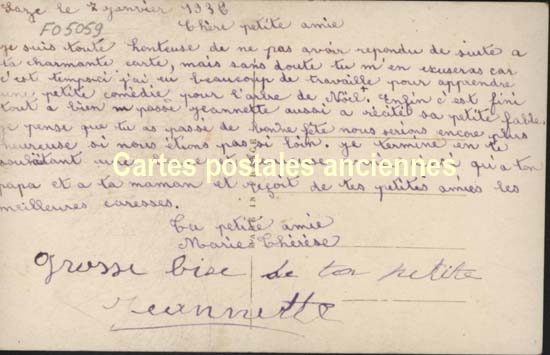 le 7 janvier 1932
FO5059
Chère petite amie
je suis toute honteuse de ne pas avoir repondu de suite a
ta charmante carte, mais sans doute tu m'en excuseras car
c'est temporci j'ai eu beaucoup de travaille pour apprendre
une petite comédie pour l'arbre de Nöel. Enfin c'est fini
tout a bien passé jeannette aussi a récité sa petite fable.
je pense que tu as passé de bonne fête nous serions encore plus
heureuse si nous étions pas si loin. je termine en te
souhaitant une qu'a ton
Cartes postales anciennes
papa et a ta maman et reçoit de tes petites amies les
meilleures caresses.
Ta petite amie
Marie Thérèse
grosse bise de ta petite
Jeannette